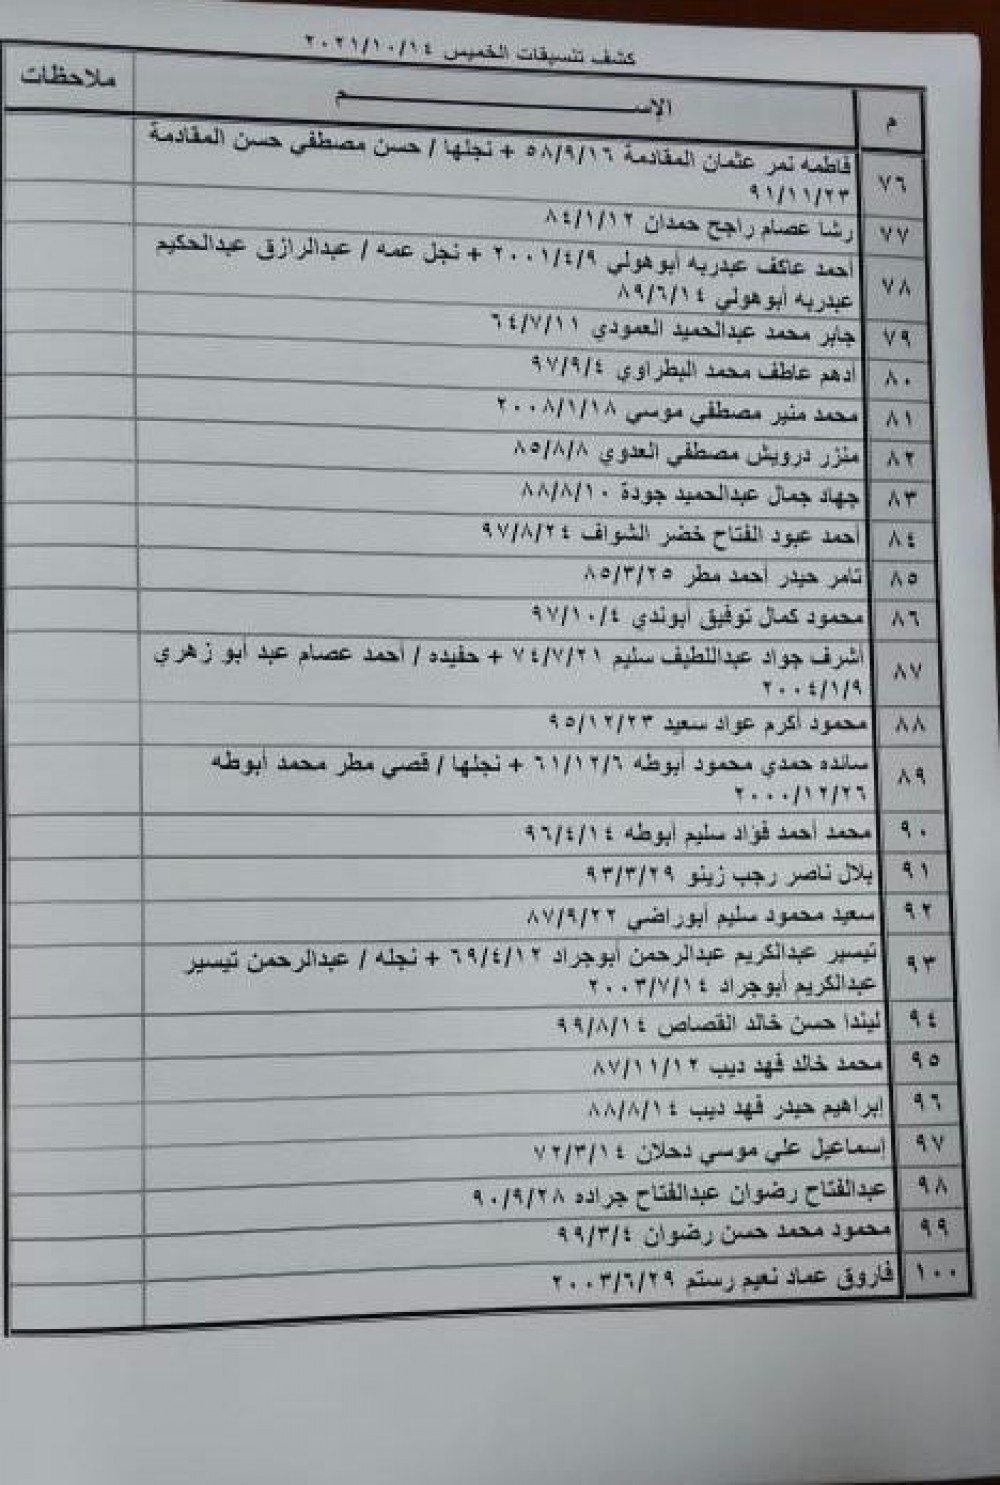 كشف تنسيقات الخميس ٢٠٢١/١٠/١٤
م الإســـــــم ملاحظات
٧٦ فاطمه نمر عثمان المقادمة ٥٨/٩/١٦ + نجلها / حسن مصطفي حسن المقادمة
٩١/١١/٢٣
٧٧ رشا عصام راجح حمدان ٨٤/١/١٢
٧٨ أحمد عاكف عبدربه أبوهولي ٢٠٠١/٤/٩ + نجل عمه / عبدالرازق عبدالحكيم
عبدربه أبوهولي ٨٩/٦/١٤
٧٩ جابر محمد عبدالحميد العمودي ٦٤/٧/١١
٨٠ ادهم عاطف محمد البطراوي ٩٧/٩/٤
٨١ محمد منير مصطفي موسي ٢٠٠٨/١/١٨
٨٢ منزر درويش مصطفي العدوي ٨٥/٨/٨
٨٣ جهاد جمال عبدالحميد جودة ٨٨/٨/١٠
٨٤ أحمد عبود الفتاح خضر الشواف ٩٧/٨/٢٤
٨٥ تامر حيدر أحمد مطر ٨٥/٣/٢٥
٨٦ محمود كمال توفيق أبوندي ٩٧/١٠/٤
٨٧ أشرف جواد عبداللطيف سليم ٧٤/٧/٢١ + حفيده / أحمد عصام عبد أبو زهري
٢٠٠٤/١/٩
٨٨ محمود أكرم عواد سعيد ٩٥/١٢/٢٣
٨٩ سانده حمدي محمود أبوطه ٦١/١٢/٦ + نجلها / قصي مطر محمد أبوطه
٢٠٠٠/١٢/٢٦
٩٠ محمد أحمد فؤاد سليم أبوطه ٩٦/٤/١٤
٩١ بلال ناصر رجب زينو ٩٣/٣/٢٩
٩٢ سعيد محمود سليم أبوراضي ٨٧/٩/٢٢
٩٣ تيسير عبدالكريم عبدالرحمن أبوجراد ٦٩/٤/١٢ + نجله / عبدالرحمن تيسير
عبدالكريم أبوجراد ٢٠٠٣/٧/١٤
٩٤ ليندا حسن خالد القصاص ٩٩/٨/١٤
٩٥ محمد خالد فهد ديب ٨٧/١١/١٢
٩٦ إبراهيم حيدر فهد ديب ٨٨/٨/١٤
٩٧ إسماعيل علي موسي دحلان ٧٢/٣/١٤
٩٨ عبدالفتاح رضوان عبدالفتاح جراده ٩٠/٩/٢٨
٩٩ محمود محمد حسن رضوان ٩٩/٣/٤
١٠٠ فاروق عماد نعيم رستم ٢٠٠٣/٦/٢٩